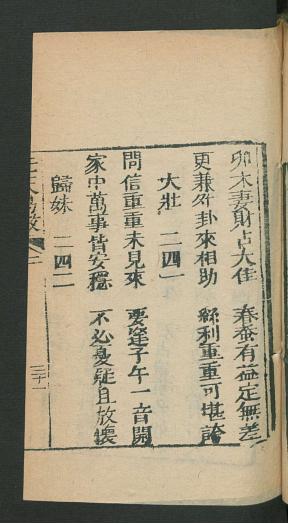 卯木妻財占大佳　春蚕有益定無差
更兼外卦來相助　絲利重重可堪誇
大壯　二四一
問信重重未見來　要逢子午一音開
家中萬事皆安穩　不必憂疑且放懷
歸妹　二四二
三十一